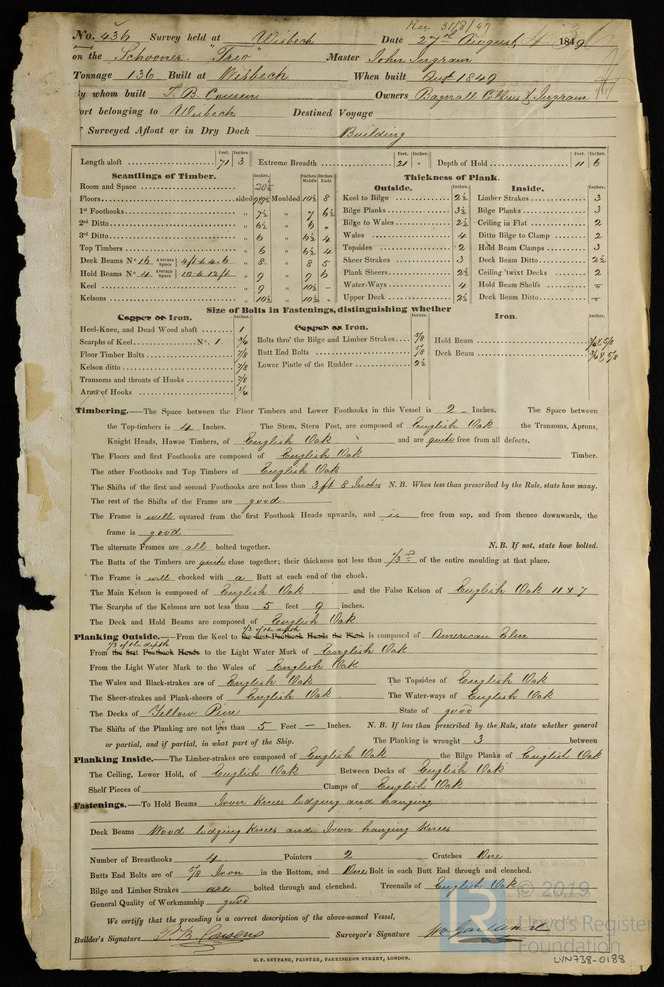 Rec 31/8/49
No. 436 Survey held at Wisbech Date 27th August 1849
on the Schooner "Trio" Master John Ingram
Tonnage 136 Built at Wisbech When built Augt 1849
By whom built T. B. Cousens Owners Bagnall & Ingram
Port belonging to Wisbech Destined Voyage
If Surveyed Afloat or in Dry Dock Building
Feet. Inches. Feet. Inches. Feet. Inches.
Length aloft 71 3 Extreme Breadth 21 - Depth of Hold 11 6
Scantlings of Timber.
Inches. Inches Middle Inches Ends
Room and Space 20½
Floors sided Moulded 10½ 8
1st Foothooks " 7½ " 7 6½
2nd Ditto " 6½ " 6 "
3rd Ditto " 6 " 5½ 4
Top Timbers " 6 " 5½ 4
Deck Beams No. 16 Average Space 4ft to 4.6 " 8 " 8 5
Hold Beams No. 4 Average Space 10.6 12ft " 9 " 9 6
Keel " 9 " 10½ -
Kelsons " 10½ " 10½ -
Thickness of Plank.
Outside. Inches.
Keel to Bilge 2½
Bilge Planks 3½
Bilge to Wales 2½
Wales 4
Topsides 2
Sheer Strakes 3
Plank Sheers 2½
Water-Ways 4
Upper Deck 2½
Inside. Inches.
Limber Strakes 3
Bilge Planks 3
Ceiling in Flat 2
Ditto Bilge to Clamp 2
Hold Beam Clamps 3
Deck Beam Ditto 2½
Ceiling 'twixt Decks 2
Hold Beam Shelfs -
Deck Beam Ditto -
Size of Bolts in Fastenings, distinguishing whether
Copper or Iron. Inches.
Heel-Knee, and Dead Wood abaft 1
Scarphs of Keel No. 1 ¾
Floor Timber Bolts 7/8
Kelson ditto 7/8
Transoms and throats of Hooks 7/8
Arms of Hooks ¾
Copper or Iron. Inches.
Bolts thro' the Bilge and Limber Strakes 5/8
Butt End Bolts 5/8
Lower Pintle of the Rudder 2½
Iron. Inches.
Hold Beam ¾ & 5/8
Deck Beam ¾ & 5/8
Timbering.—The Space between the Floor Timbers and Lower Foothooks in this Vessel is 2 Inches. The Space between
the Top-timbers is 4 Inches. The Stem, Stern Post, are composed of English Oak the Transoms, Aprons,
Knight Heads, Hawse Timbers, of English Oak and are quite free from all defects.
The Floors and first Foothooks are composed of English Oak Timber.
The other Foothooks and Top Timbers of English Oak
The Shifts of the first and second Foothooks are not less than 3 ft 8 Inches N.B. When less than prescribed by the Rule, state how many.
The rest of the Shifts of the Frame are good
The Frame is well squared from the first Foothook Heads upwards, and is free from sap, and from thence downwards, the
frame is good
The alternate Frames are all bolted together. N.B. If not, state how bolted.
The Butts of the Timbers are quite close together; their thickness not less than 1/3rd of the entire moulding at that place.
The Frame is well chocked with a Butt at each end of the chock.
The Main Kelson is composed of English Oak and the False Kelson of English Oak 11 x 7
The Scarphs of the Kelsons are not less than 5 feet 9 inches.
The Deck and Hold Beams are composed of English Oak
Planking Outside.—From the Keel to the first Foothook Heads the Plank is composed of American Elm
1/3 of the depth
1/3 of the depth
From the first Foothook Heads to the Light Water Mark of English Oak
From the Light Water Mark to the Wales of English Oak
The Wales and Black-strakes are of English Oak The Topsides of English Oak
The Sheer-strakes and Plank-sheers of English Oak The Water-ways of English Oak
The Decks of Yellow Pine State of good
The Shifts of the Planking are not less than 5 Feet — Inches. N.B. If less than prescribed by the Rule, state whether general
or partial, and if partial, in what part of the Ship. The Planking is wrought 3 between
Planking Inside.—The Limber-strakes are composed of English Oak the Bilge Planks of English Oak
The Ceiling, Lower Hold, of English Oak Between Decks of English Oak
Shelf Pieces of Clamps of English Oak
Fastenings.—To Hold Beams Iron Knees lodging and hanging
Deck Beams Wood lodging Knees and Iron hanging Knees
Number of Breasthooks 4 Pointers 2 Crutches One
Butts End Bolts are of 5/8 Iron in the Bottom, and One Bolt in each Butt End through and clenched.
Bilge and Limber Strakes are bolted through and clenched. Treenails of English Oak
General Quality of Workmanship good
We certify that the preceding is a correct description of the above-named Vessel,
Builder's Signature T B Cousens Surveyor's Signature
G. F. SEYFANG, PRINTER, FARRINGDON STREET, LONDON.
© 2019
LR
Lloyd's Register
Foundation
UIN738-0188